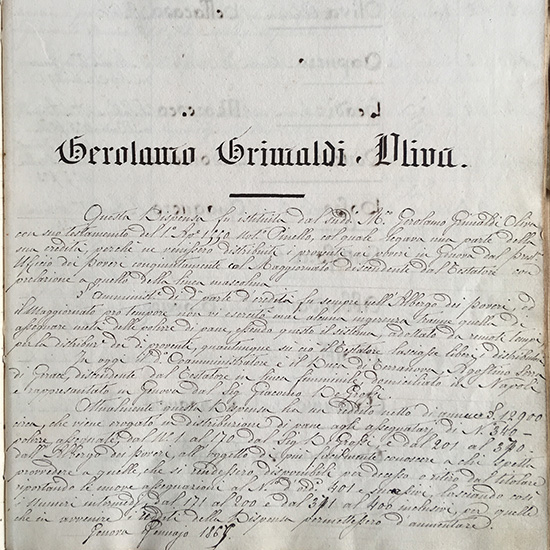 Gerolamo Grimaldi Oliva.
Questa Dispensa fu istituita dal sudd. M. Gerolamo Grimaldi Oliva
con suo testamento del 1° Not. Pinello, col quale legava una parte della
sua eredità, perchè ne venissero distribuiti i proventi ai poveri in Genova dal
Ufficio dei Poveri congiuntamente col Maggiornato discendente dal Testatore con
prelazione a quello della linea mascolina.
di d. parte d'eredità fu sempre nell'Albergo dei Poveri, ed
il Maggiornato pro tempore non vi esercitò mai alcuna ingerenza tranne quella di
assegnare metà delle polizze di pane, essendo questo il sistema adottato da remoti tempi
per la distribuzione dei proventi, quantunque su ciò il Testatore lasciasse liberi i distributori
In oggi Coamministratore è il Duca di Terranova Agostino
discendente dal Testatore in linea femminile domiciliato in Napoli
e rappresentato in Genova dal Sig. Giacomo De
Attualmente questa Dispensa ha un reddito netto di annue 12900
circa, che viene erogato in distribuzione di pane agli assegnatarj di N. 340
polizze assegnate dal N. 1 al 170 dal Sig. e dal 201 a 370
dall'Albergo dei Poveri, all'oggetto di conoscere a chi spetta
provvedere a quelle, che si rendessero disponibili per decesso o ritiro dal
riportando le nuove assegnazioni ai 401 e successivi, lasciando così
i numeri intermedj dal 171 al 200 e dal 371 al 400 inclusivi, per quelle
che in avvenire i redditi della Dispensa permettessero di aumentare.
Genova Gennajo